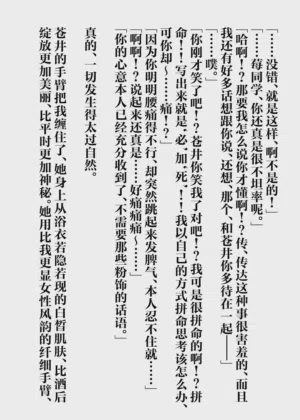 「……没错、就是这样、啊不是的！」
「……莓同学、你还真是很不坦率呢。」
「哈啊！？那要我怎么说你才懂啊！？传、传达这种事很害羞的、而且
我还有好多话想跟你说、还想、那个、和苍井你多待在一起——」
「……噗。」
「你刚才笑了吧！？苍井你笑我了对吧！？我可是很拼命的啊！？拼
命！！写出来就是、必、加、死、！！！我以自己的方式拼命思考该怎么办、
可你却〜……痛！？」
「因为你明明腰痛得不行、却突然跳起来发脾气、本人忍不住就……」
「啊啊！？说起来还真是……好痛痛痛〜……」
「你的心意本人已经充分收到了、不需要那些粉饰的话语。」
真的、一切发生得太过自然。
苍井的手臂把我缠住了、她身上从浴衣若隐若现的白皙肌肤、比酒后
绽放更加美丽、比平时更加神秘。她用比我更显女性风韵的纤细手臂、